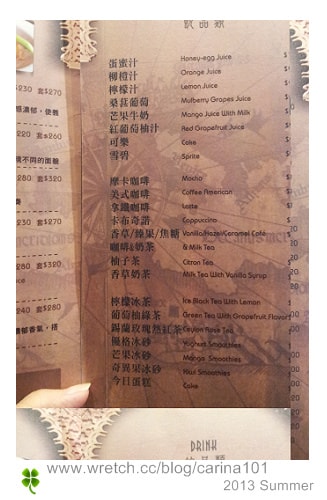 飲品類
蛋蜜汁 Honey-egg Juice
柳橙汁 Orange Juice
檸檬汁 Lemon Juice
桑葚葡萄 Mulberry Grapes Juice
芒果牛奶 Mango Juice With Milk
紅葡萄柚汁 Red Grapefruit Juice
可樂 Coke
雪碧 Sprite
摩卡咖啡 Mocha
美式咖啡 Coffee American
拿鐵咖啡 Latte
卡布奇諾 Cappuccino
香草/榛果/焦糖 Vanilla/Hazel/Caramel Café
咖啡&奶茶 & Milk Tea
柚子茶 Citron Tea
香草奶茶 Milk Tea With Vanilla Syrup
檸檬冰茶 Ice Black Tea With Lemon
葡萄柚綠茶 Green Tea With Grapefruit Flavor
錫蘭玫瑰然紅茶 Ceylon Rose Tea
優格冰砂 Yoghurt Smoothies
芒果冰砂 Mango Smoothies
奇異果冰砂 Kiwi Smoothies
今日蛋糕 Cake
$230 套$270
320
240 套$280
240 套$280
DRINK
飲品類
www.wretch.cc/blog/carina101
2013 Summer